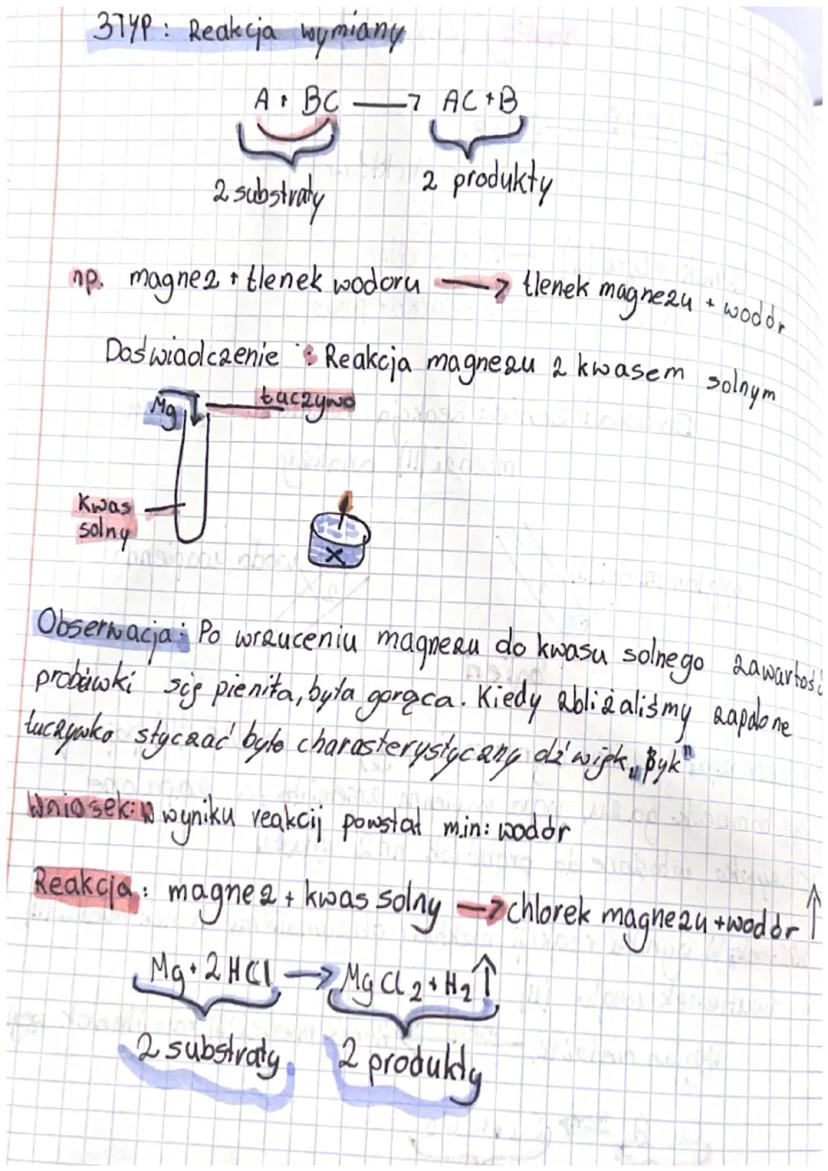 3TYP: Reakcja wymiany
A + BC → AC + B
2 substraty 2 produkty
np. magnez + tlenek wodoru → tlenek magnezu + wodór
Doświadczenie: Reakcja magnezu z kwasem solnym
Mg łuczywo
Kwas
solny
X
Obserwacja: Po wrzuceniu magnezu do kwasu solnego zawartość
probówki się pieniła, była gorąca. Kiedy zbliżaliśmy zapalone
łuczywko styczać było charasterystyczny dźwięk „Pyk"
Wniosek: W wyniku reakcij powstał min: wodór
Reakcja: magnez + kwas solny → chlorek magnezu + wodór ↑
Mg + 2HCl → MgCl₂ + H₂ ↑
2 substraty 2 produkty